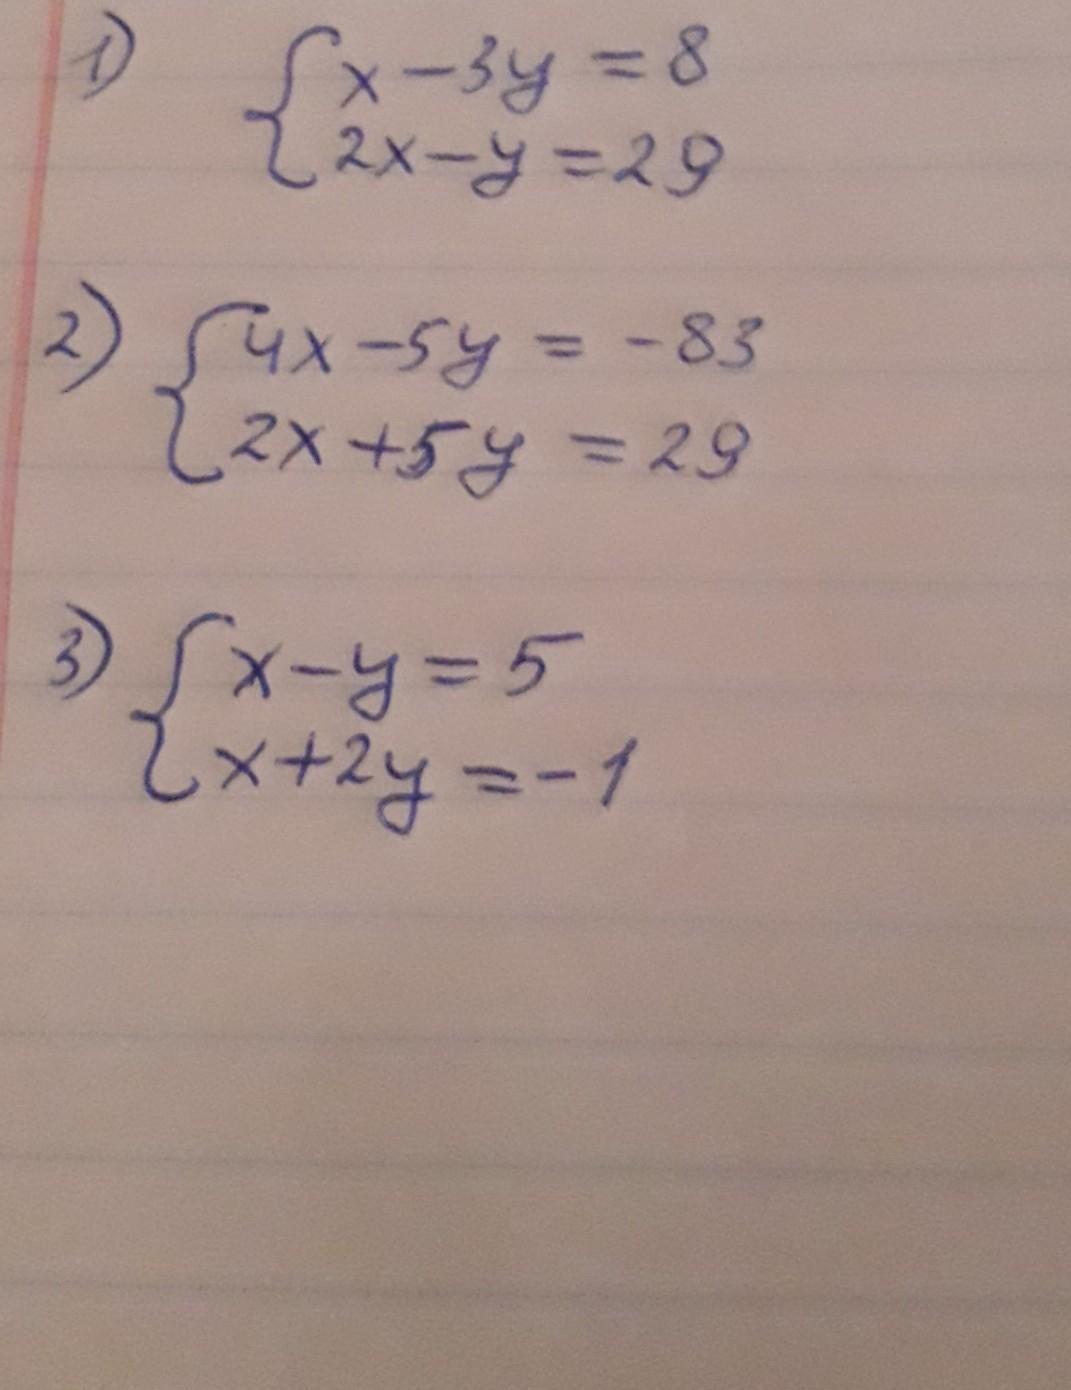 1) { x - 3y = 8
2x - y = 29
2) { 4x - 5y = -83
2x + 5y = 29
3) { x - y = 5
x + 2y = -1